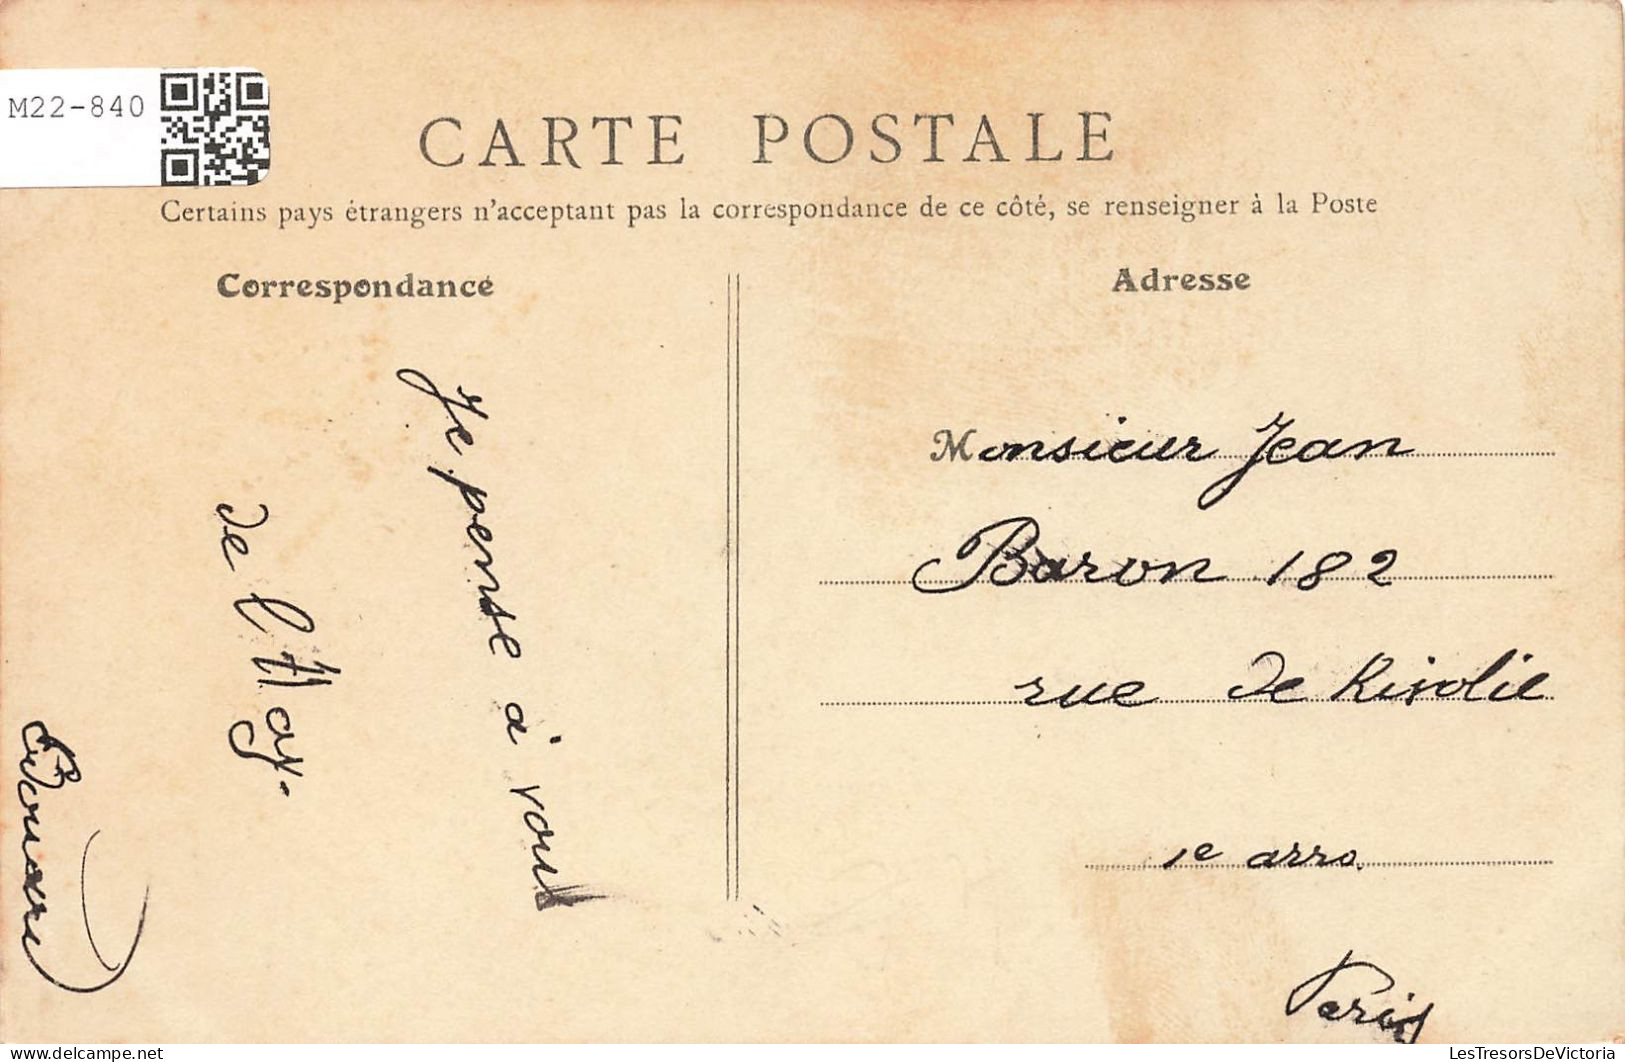 M22-840
CARTE POSTALE
Certains pays étrangers n'acceptant pas la correspondance de ce côté, se renseigner à la Poste
Correspondance
Je pense à vous
de l'Hay.
Edouard
Adresse
Monsieur Jean
Baron 182
rue de Rivolie
1e arro.
Paris
delcampe.net
LesTresorsDeVictoria